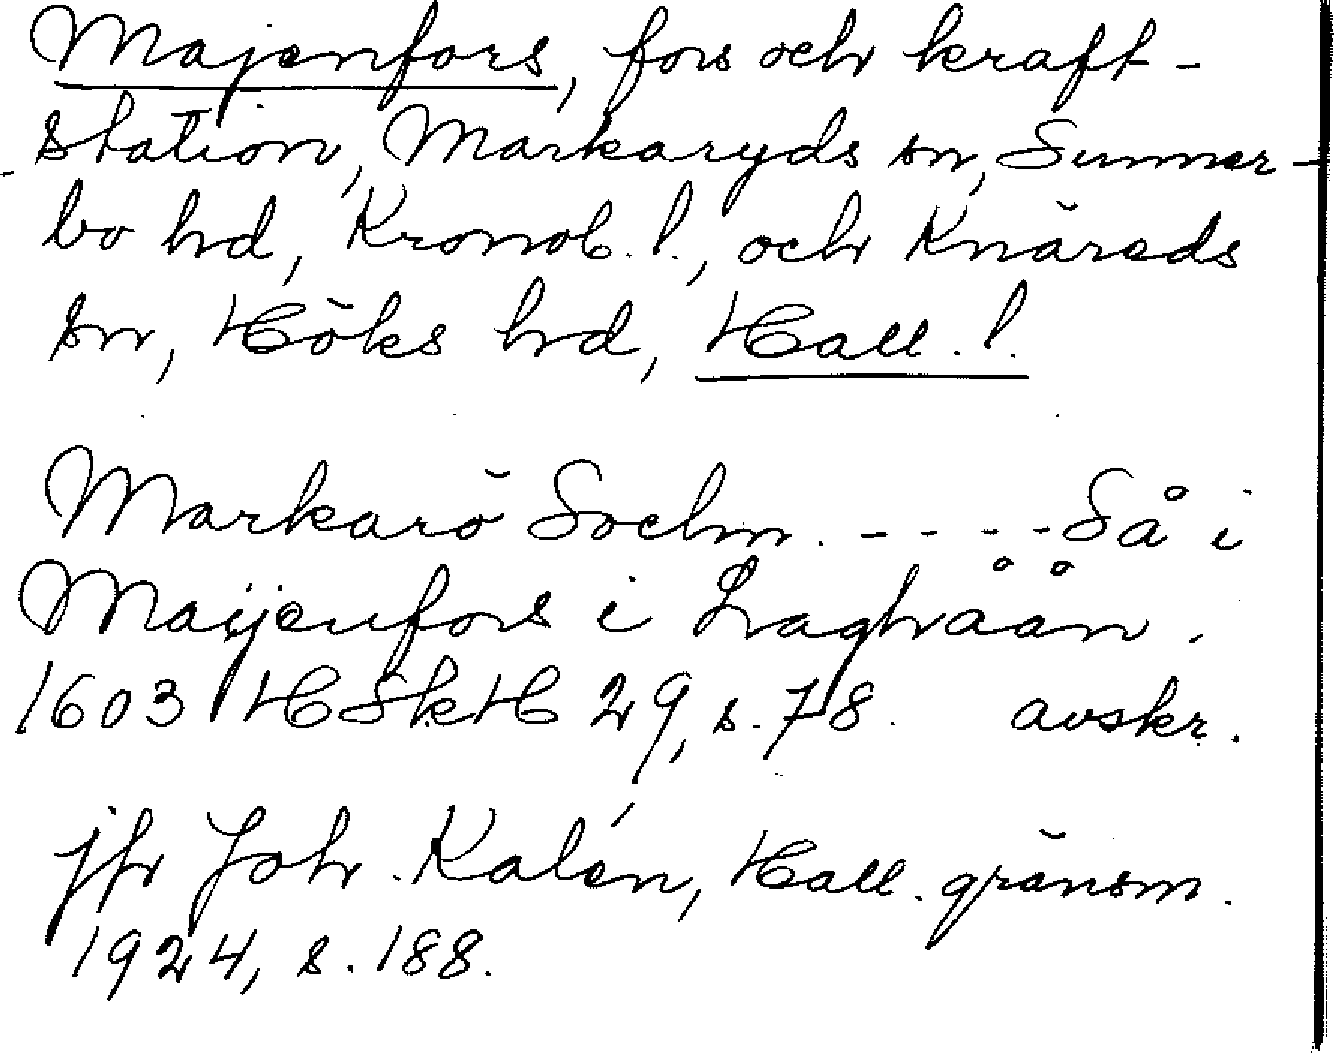 Majenfors, fors och kraft-
station, Markaryds sn, Sunner-
bo hd, Kronob. l., och Knäreds
sn, Höks hd, Hall. l.
Markarö Sochn. - - - - Så i
Maÿenfors i Laghåån.
1603 HSkH 29, s. 78. avskr.
jfr Joh. Kalén, Hall. gränsm.
1924, s. 188.